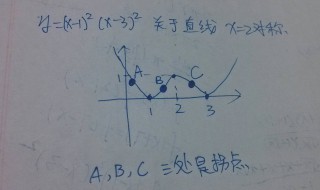 y=(x-1)²(x-3)² 关于直线 x=2对称.
1 A B C
1 2 3
A,B,C 三处是拐点